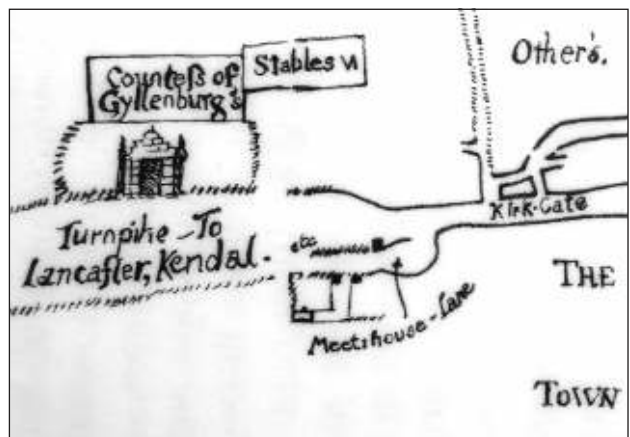 Counteſs of
Gyllenburg's
Stables
Other's.
Kirk-Gate
Turnpike - To
Lancaſter, Kendal.
etc
Meet:house-Lane
THE
TOWN